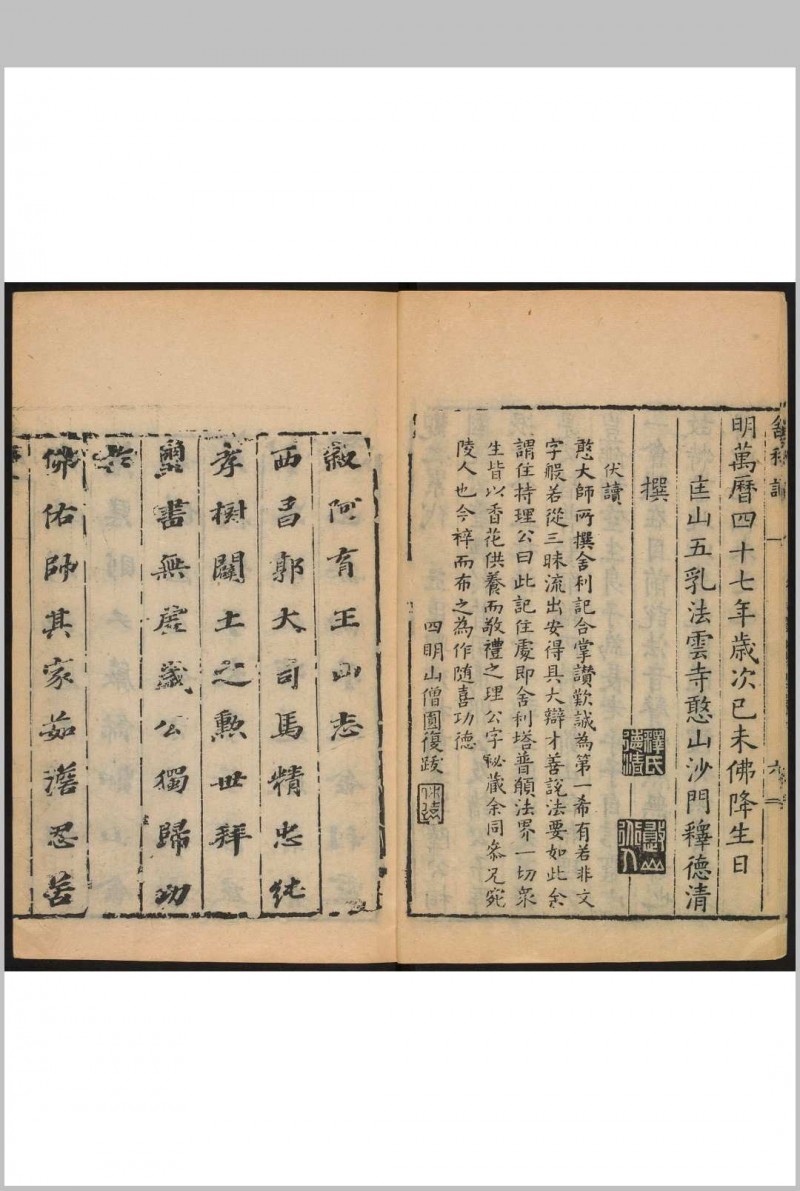 明萬曆四十七年歲次己未佛降生日
匡山五乳法雲寺憨山沙門釋德清
撰
釋氏德清
憨山
伏讀
憨大師所撰舍利記合掌讚歎誠為第一希有若非文
字般若從三昧流出安得具大辯才善說法要如此余
謂住持理公曰此記住處即舍利塔普願法界一切眾
生皆以香花供養而敬禮之理公字秘藏余同叅兄宛
陵人也今梓而布之為作隨喜功德
四明山僧圓復跋
敘阿育王山志
西昌郭大司馬精忠純
孝樹闢土之勲世拜
璽書無虗歲公獨歸功
佛佑師其家茹澹忍苦